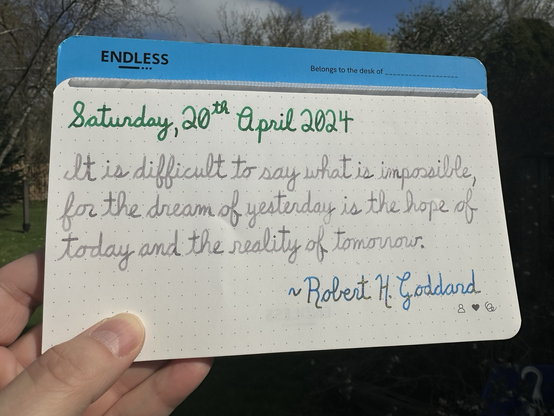 ENDLESS
Belongs to the desk of
Saturday, 20th April 2024
It is difficult to say what is impossible,
for the dream of yesterday is the hope of
today and the reality of tomorrow.
~Robert H. Goddard